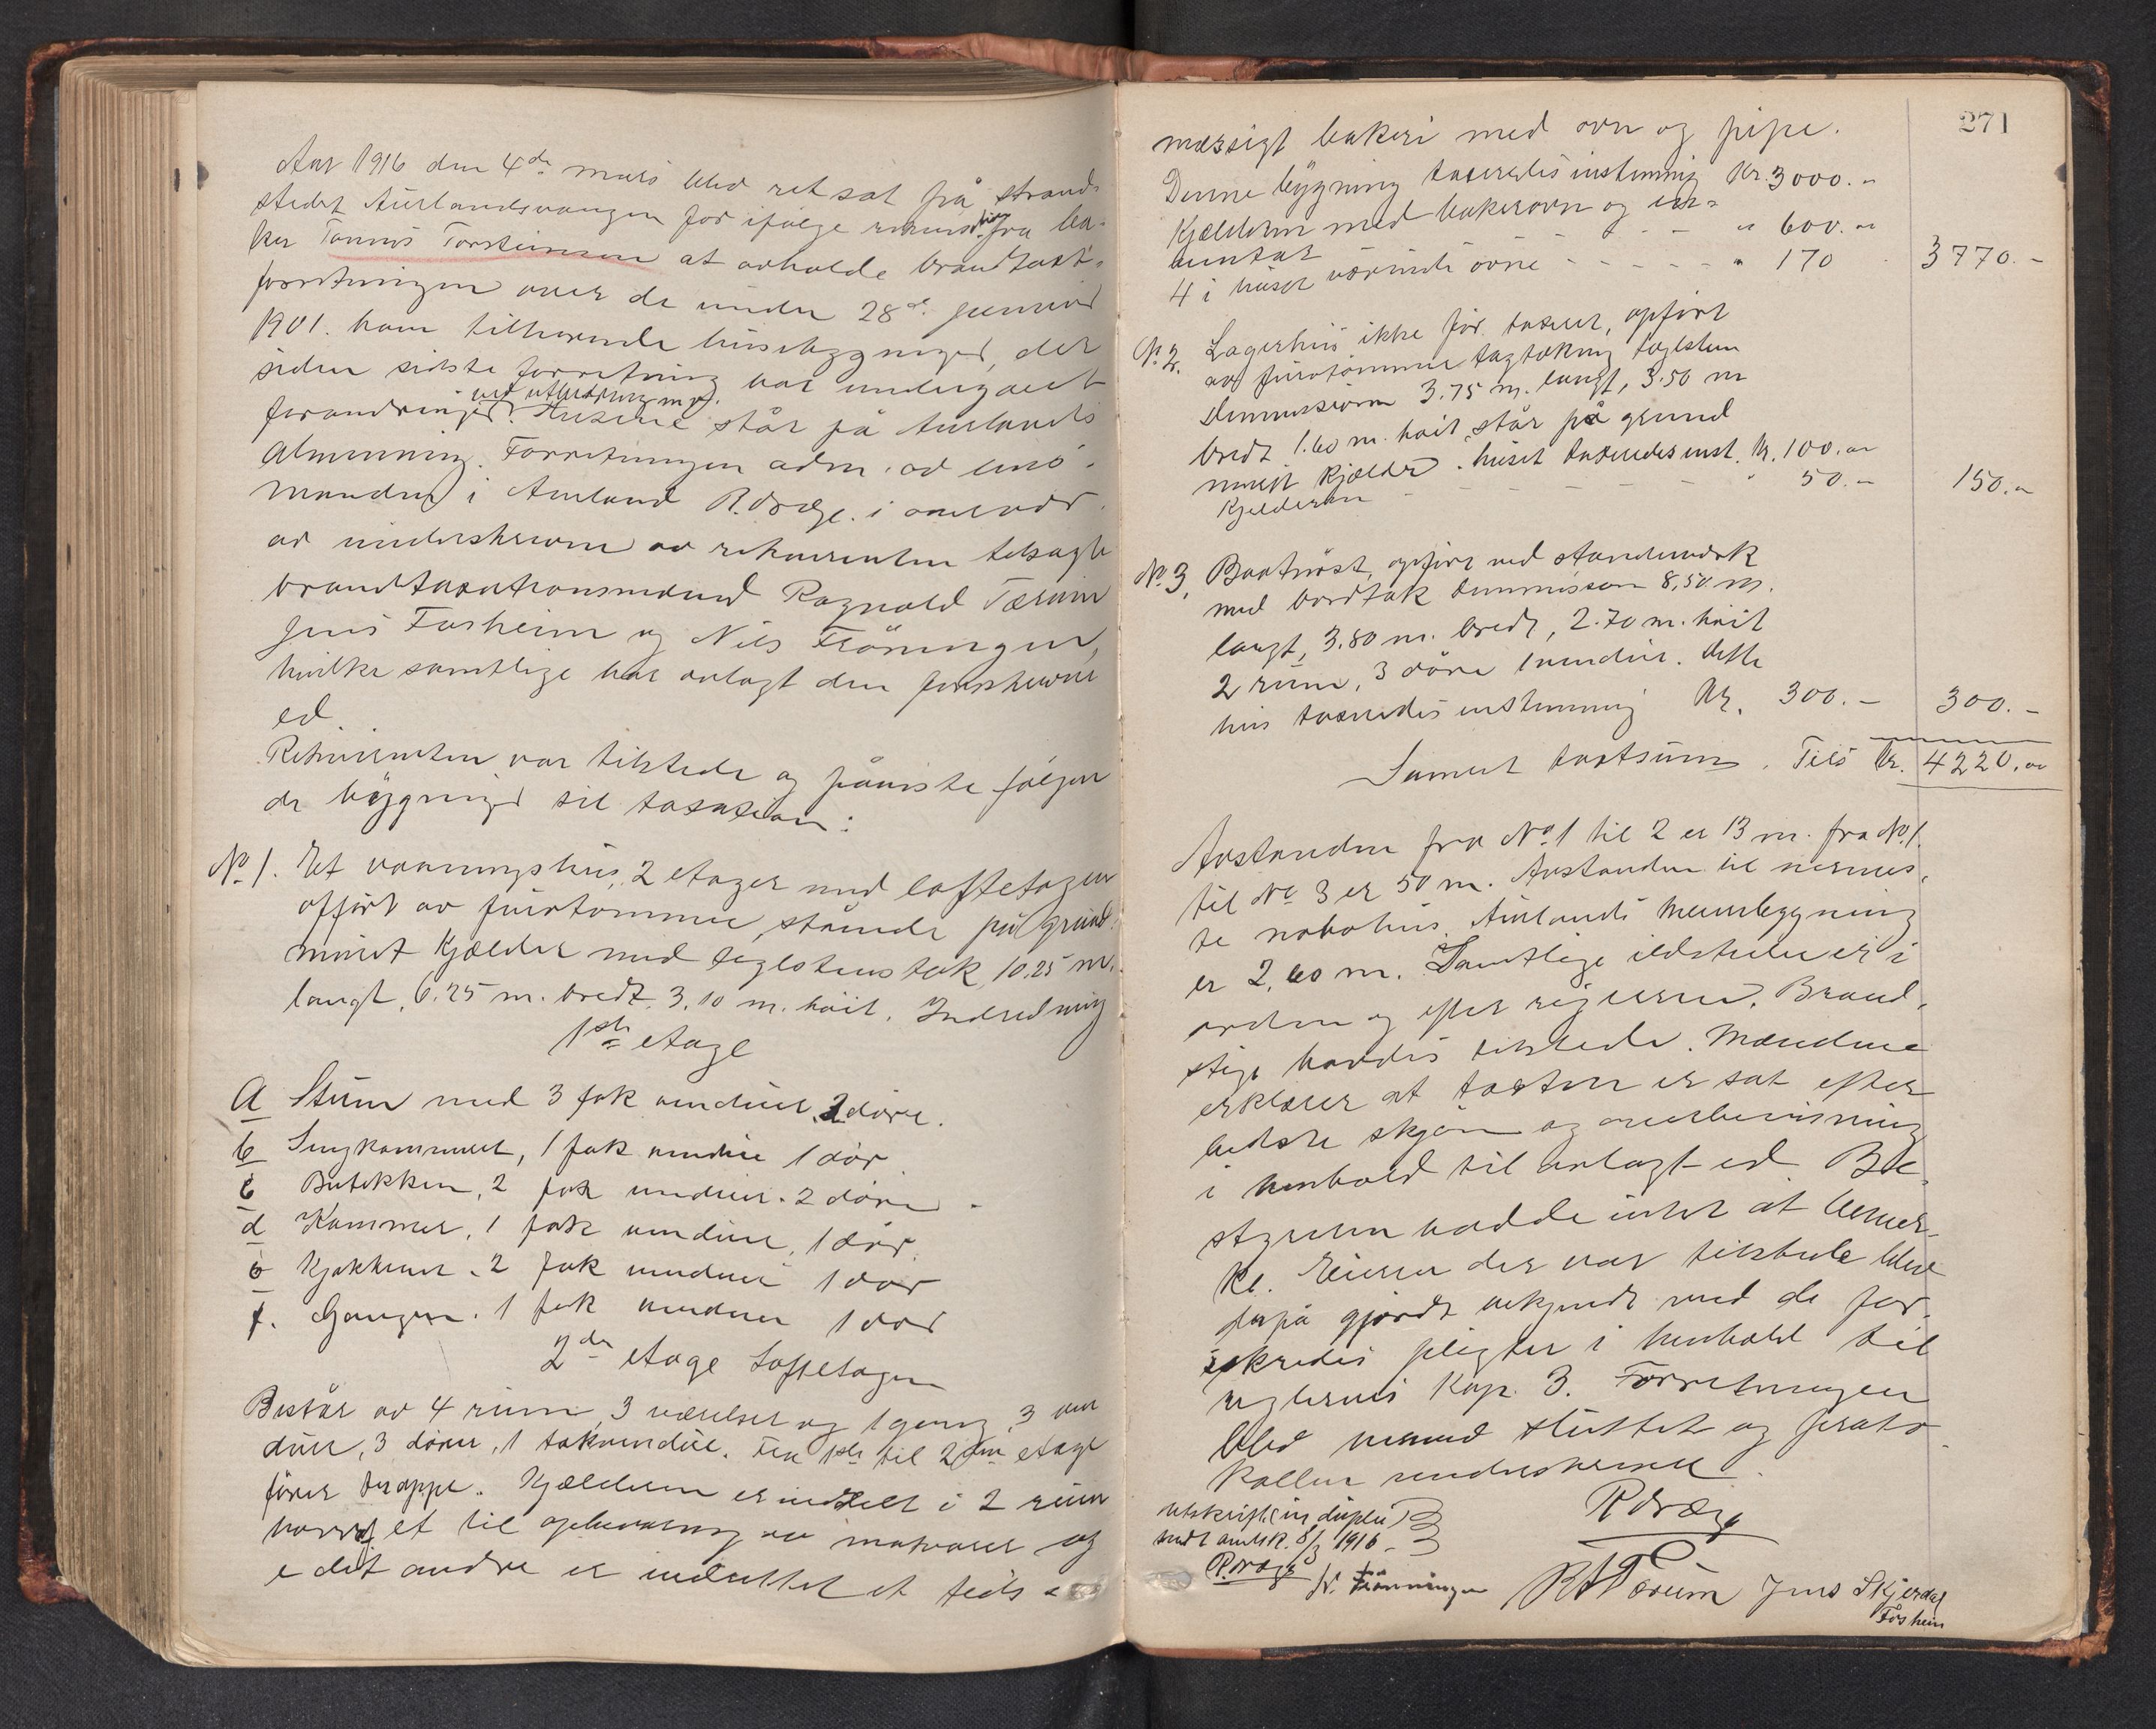 Aar 1916 den 4de mars blev ret sat på strand-
stedet Aurlandsvangen for ifølge rekvisition fra ba-
ker Tomas Torsteinson at avholde brandtakst-
forretningen over de under 28de januar
1901. ham tilhørende husebygninger, der
siden sidste forretning har undergaaet
forandringer ved utbedring m.v. Husene står på Aurlands
Almenning. Forretningen adm. av lens-
manden i Aurland R. Dræge i overvær
av underskrevne av rekvirenten tilsagte
brandtaxationsmænd Ragnvald Tærum
Jens Fosheim og Nils Frönningen,
hvilke samtlige har avlagt den foreskrevne
ed.
Rekvirenten var tilstede og påviste følgen
de bygninger til taxation:
No 1. Et vaaningshus, 2 etager med loftetagen
opført av furutømmer, stående på grund-
muret kjælder med teglstenstak, 10.25 m.
langt, 6.25 m. bredt, 3.10 m. høit. Indredning
1ste etage
a Stuen med 3 fak vinduer, 2 døre.
b Sengkammeret, 1 fak vindue 1 dør
c Butikken, 2 fak vinduer. 2 døre.
d Kammer, 1 fak vindue, 1 dør.
e Kjøkkenet. 2 fak vinduer 1 dør
f. Gangen. 1 fak vinduer 1 dør
2den etage Loftetagen
Består av 4 rum, 3 værelser og 1 gang, 3 vin
duer, 3 dører, 1 takvindue. Fra 1ste til 2den etage
fører trappe. Kjælderen er inddelt i 2 rum
hvorav et til opbevaring av matvarer og
i det andre er indrettet et tids-
271
mæssigt bakeri med ovn og pipe.
Denne bygning taxeredes instemmig Kr. 3000.-
Kjælderen med bakerovn og in-
ventar - - " 600.-
4 i huset værende ovne - - - - - " 170 3770.-
No 2. Lagerhus ikke før taxert, opført
av furutømmer tagtækning teglsten
dimensioner 3.75 m. langt, 3.50 m
bredt 1.60 m. høit, står på grund
muret kjælder. huset taxeredes inst. Kr. 100.-
Kjelderen - - - - - " 50.- 150.-
No 3. Baatnøst, opført ved standerverk
med bordtak dimension 8,50 m.
langt, 3.80 m. bredt, 2.70 m. høit
2 rum, 3 døre 1 vindue. Dette
hus taxeredes enstemmig Kr. 300.- 300.-
Samlet takstsum. Tils Kr. 4220.-
Avstanden fra No 1 til 2 er 13 m. fra No 1.
til No 3 er 50 m. Avstanden til nærmes-
te nabohus, Aurlands Meieribygning
er 2,60 m. Samtlige ildsteder er i
orden og efter reglerne. Brand-
stige havdes tilstede. Mændene
erklærer at taksten er sat efter
bedste skjøn og overbevisning
i henhold til avlagt ed. Be-
styreren hadde intet at bemer-
ke. Eieren der var tilstede blev
derpå gjordt bekjendt med de for-
sikredes pligter i henhold til
reglernes Kap. 3. Forretningen
blev hermed sluttet og proto-
kollen underskrevet.
R Dræge
utskrift (in duplo)
sendt amtsk. 8/3 1916 -
R. Dræge N. Frönningen R Tærum Jens Skjerdal
Fosheim